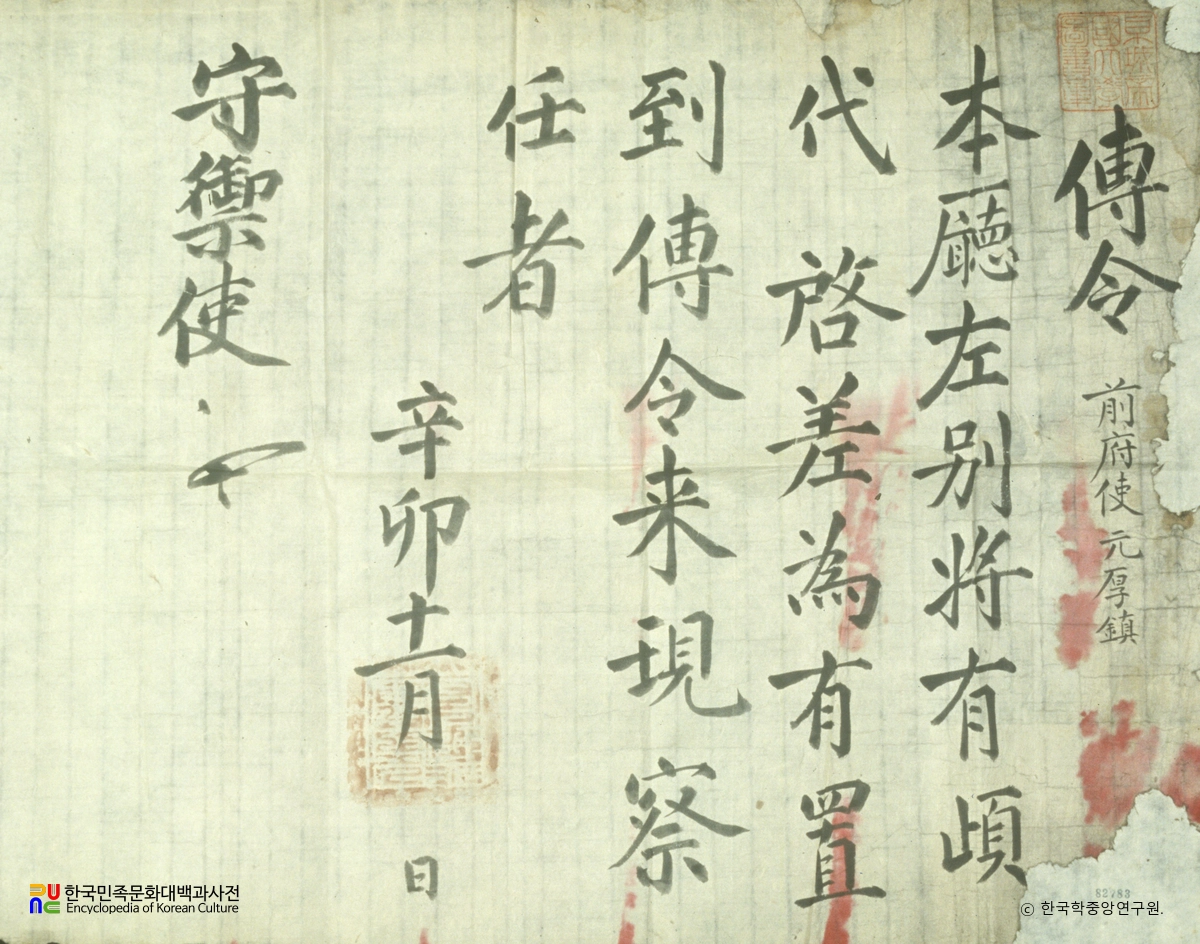 傳令 前府使元厚鎭
本廳左別將有頉
代 啓差為有置
到傳令来現察
任者
辛卯十一月 日
守禦使
한국민족문화대백과사전
Encyclopedia of Korean Culture
82.83
ⓒ 한국학중앙연구원.